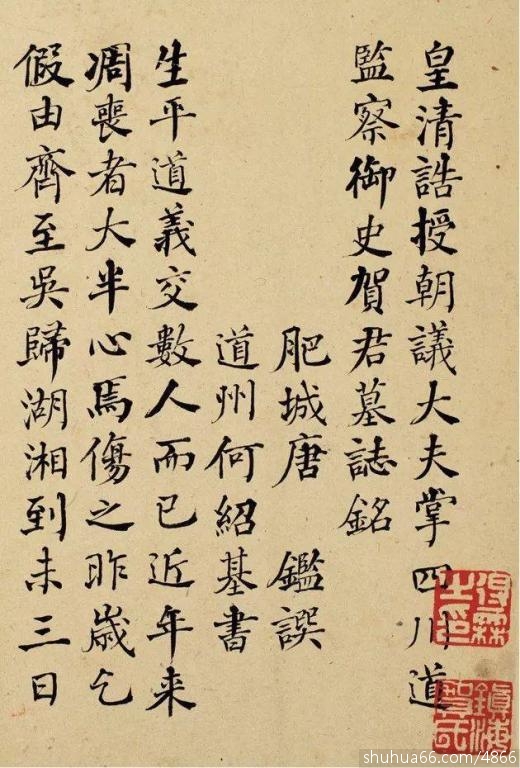 皇清誥授朝議大夫掌四川道
監察御史賀君墓誌銘
肥城唐鑑譔
道州何紹基書
生平道義交數人而已近年来
凋喪者大半心焉傷之昨歲乞
假由齊至吳歸湖湘到未三日
shuhua66.com/4866